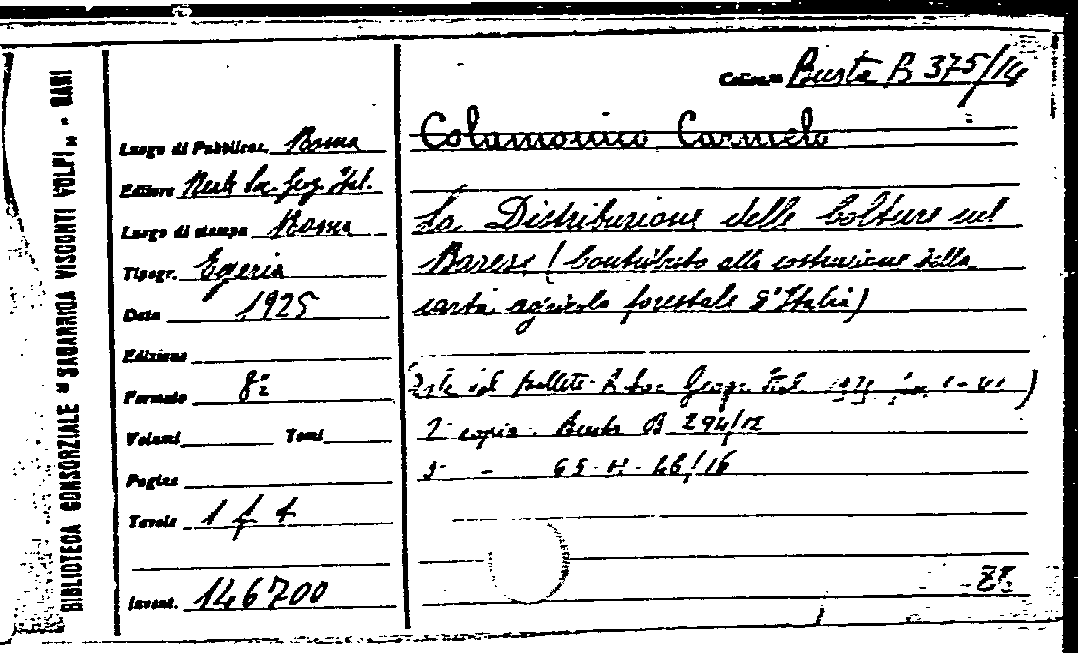 BIBLIOTECA CONSORZIALE "SAGARRIGA VISCONTI VOLPI" - BARI
Busta B 375/14
Colamonico Carmelo
Luogo di Pubblicaz. Roma
Editore Reale Soc. Geog. Ital.
Luogo di stampa Roma
Tipogr. Egeria
Data 1925
Edizione
Formato 8º
Volumi Tomi
Pagine
Tavole 1 f. t.
Invent. 146700
La Distribuzione delle Colture nel
Barese (Contributo alla costruzione della
carta agricola forestale d'Italia)
Bollett. Soc. Geogr. Ital.
2ª copia. Busta B 294/12
3ª -